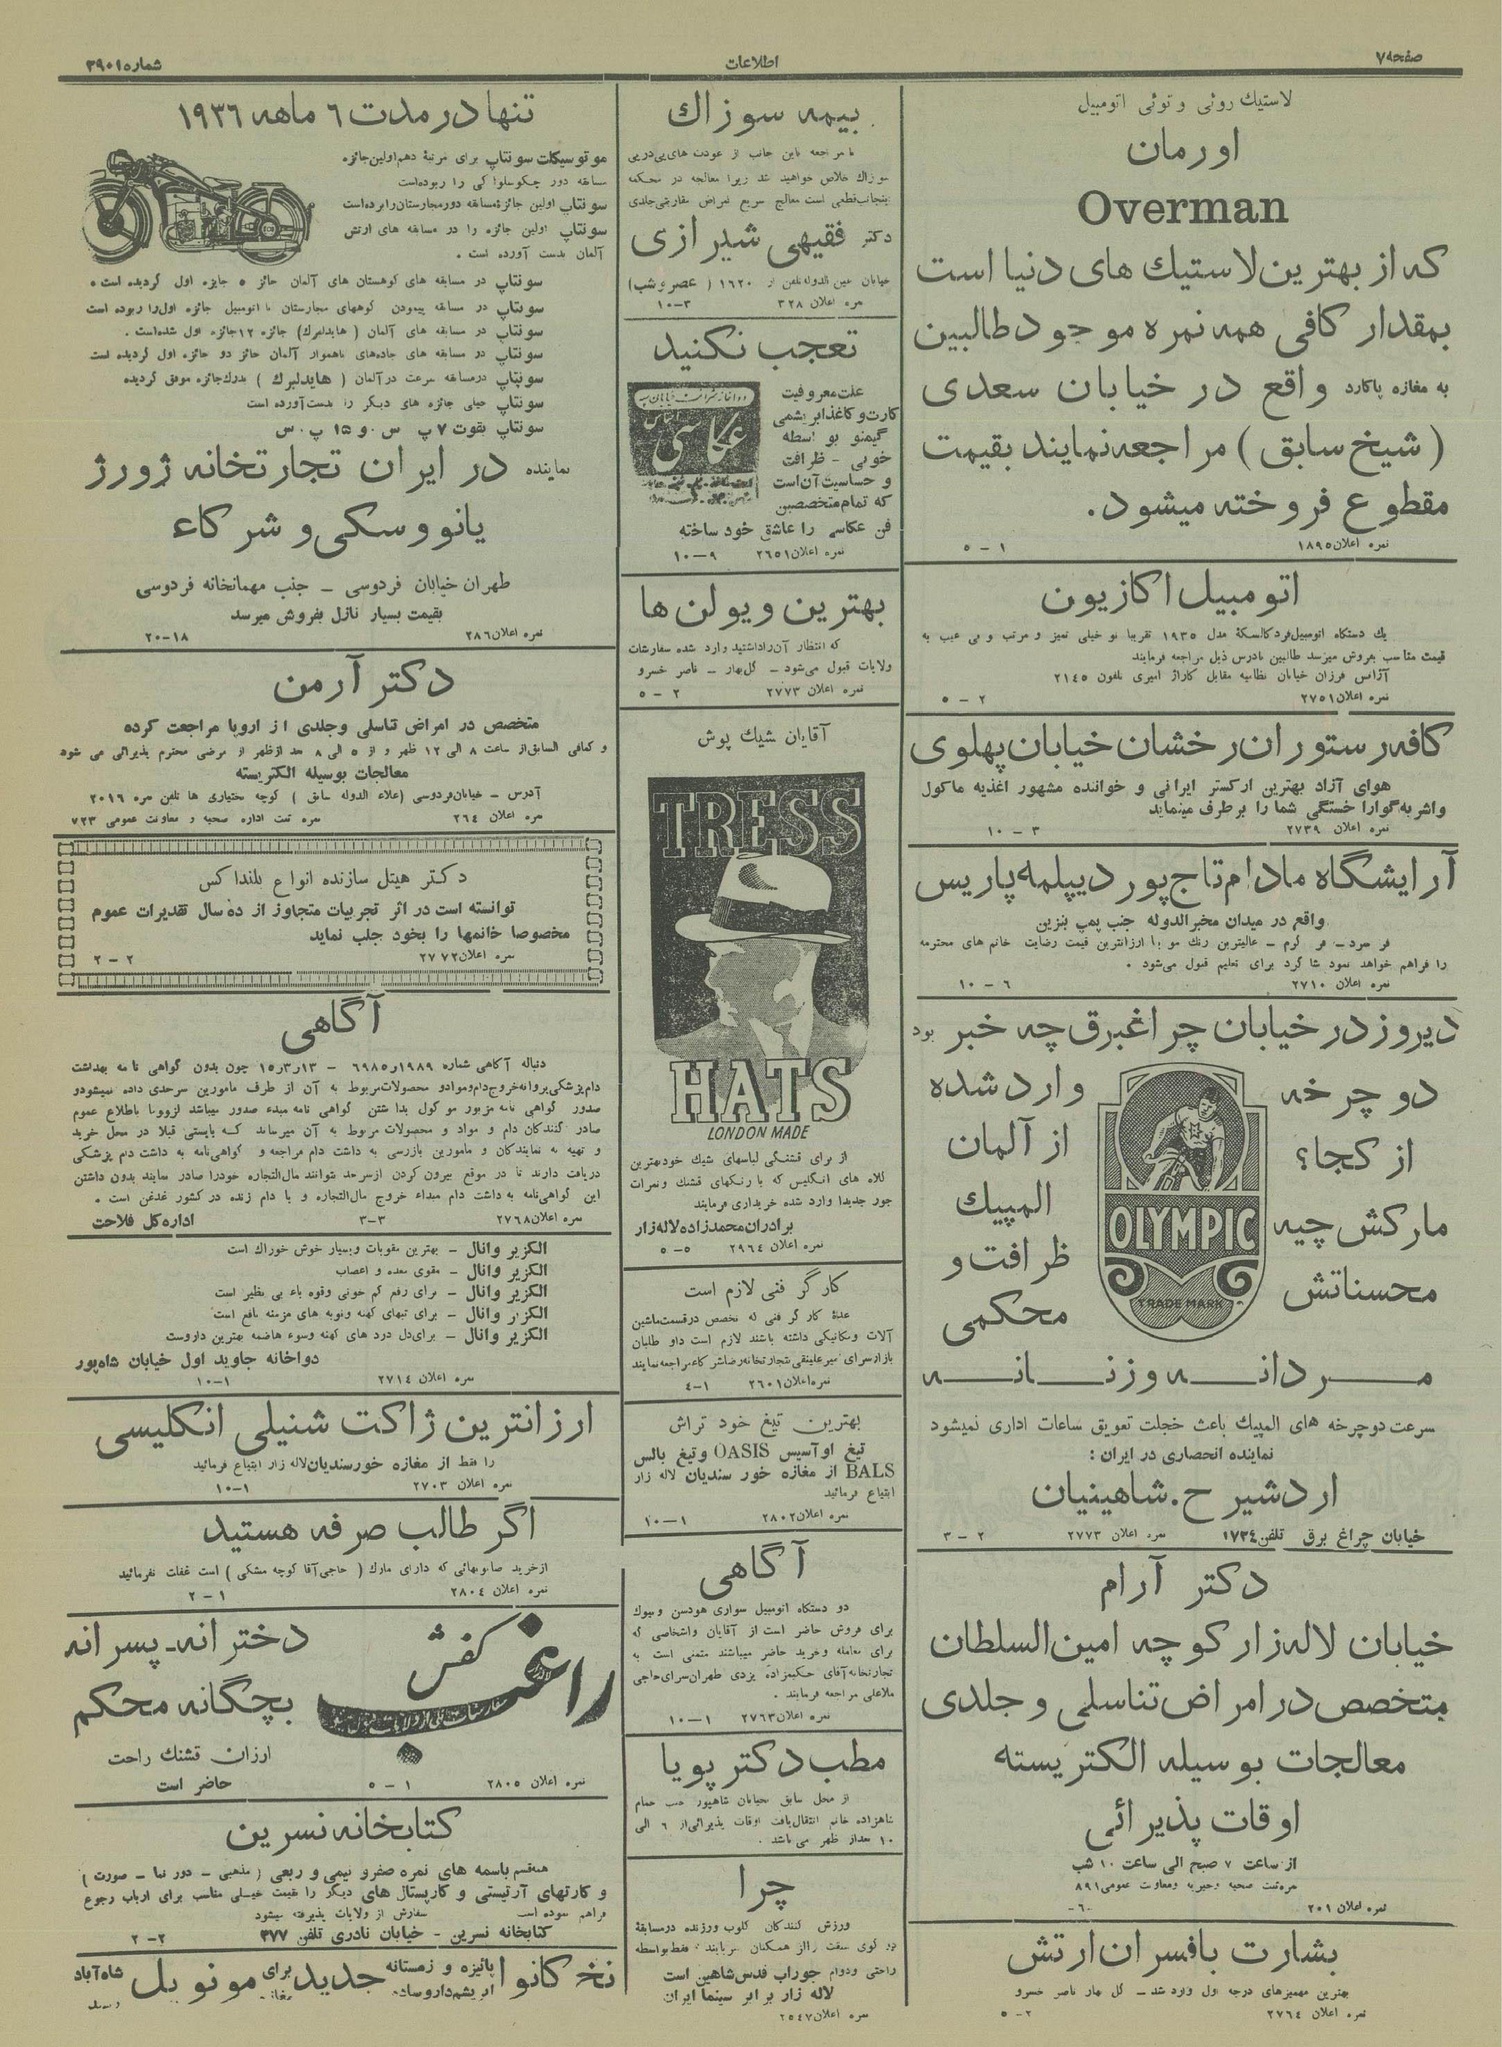 صفحه ۷
اطلاعات
شماره ۳۹۰۱
لاستیك روئی و توئی اتومبیل
اورمان
Overman
که از بهترین لاستیك های دنیا است
بمقدار کافی همه نمره موجود طالبین
به مغازه پاکارد واقع در خیابان سعدی
(شیخ سابق) مراجعه نمایند بقیمت
مقطوع فروخته میشود.
نمره اعلان ۱۸۹۵ ۱ - ۵
اتومبیل اکازیون
یك دستگاه اتومبیل فرد کالسکهٔ مدل ۱۹۳۵ تقریبا نو خیلی تمیز و مرتب و بی عیب به
قیمت مناسب بفروش میرسد طالبین بادرس ذیل مراجعه فرمایند
آژانس فرزان خیابان نظامیه مقابل کاراژ امیری تلفون ۲۱۴۵
نمره اعلان ۲۷۵۱ ۲ - ۵
کافه رستوران رخشان خیابان پهلوی
هوای آزاد بهترین ارکستر ایرانی و خواننده مشهور اغذیه ماکول
واشربه گوارا خستگی شما را برطرف مینماید
نمره اعلان ۲۷۳۹ ۳ - ۱۰
آرایشگاه مادام تاج پور دیپلمه پاریس
واقع در میدان مخبرالدوله جنب پمپ بنزین
فر سرد - فر گرم - عالیترین رنك مو با ارزانترین قیمت رضایت خانم های محترمه
را فراهم خواهد نمود شاگرد برای تعلیم قبول می‌شود .
نمره اعلان ۲۷۱۰ ۶ - ۱۰
دیروز در خیابان چراغ برق چه خبر بود
دوچرخه
از کجا؟
مارکش چیه
محسناتش
OLYMPIC
TRADE MARK
وارد شده
از آلمان
المپیك
ظرافت و
محکمی
مردانه و زنانه
سرعت دوچرخه های المپیك باعث خجلت تعویق ساعات اداری نمیشود
نماینده انحصاری در ایران :
اردشیر ح. شاهینیان
خیابان چراغ برق تلفن ۱۷۳۴ نمره اعلان ۲۷۷۳ ۲ - ۳
دکتر آرام
خیابان لاله زار کوچه امین السلطان
متخصص در امراض تناسلی و جلدی
معالجات بوسیله الکتریسته
اوقات پذیرائی
از ساعت ۷ صبح الی ساعت ۱۰ شب
نمره ثبت صحیه و خیریه و معاونت عمومی ۸۹۱
نمره اعلان ۲۰۱ ۶۰-
بشارت بافسران ارتش
بهترین مهمیزهای درجه اول وارد شد - گل بهار ناصر خسرو
نمره اعلان ۲۷۶۴ ۲ - ۵
بیمه سوزاك
با مراجعه باین جانب از عودت های پی درپی
سوزاك خلاص خواهید شد زیرا معالجه در محکمه
اینجانب قطعی است معالج سریع امراض مقاربتی جلدی
دکتر فقیهی شیرازی
خیابان عین الدوله تلفن ۱۶۲۰ (عصر و شب)
نمره اعلان ۳۲۸ ۳-۱۰
تعجب نکنید
علت معروفیت
کارت و کاغذ ابریشمی
گیمنو بواسطه
خوبی - ظرافت
و حساسیت آن است
که تمام متخصصین
فن عکاسی را عاشق خود ساخته
عکاسی
نمره اعلان ۲۶۵۱ ۹-۱۰
بهترین ویولن ها
که انتظار آن را داشتید وارد شده سفارشات
ولایات قبول می‌شود - گل بهار - ناصر خسرو
نمره اعلان ۲۷۷۳ ۲ - ۵
آقایان شیك پوش
TRESS
HATS
LONDON MADE
از برای قشنگی لباسهای شیك خود بهترین
کلاه های انگلیس که با رنکهای قشنك و نمرات
جور جدیدا وارد شده خریداری فرمایند
برادران محمدزاده لاله زار
نمره اعلان ۲۹۶۴ ۵- ۵
کارگر فنی لازم است
عدهٔ کارگر فنی که تخصص در قسمت ماشین
آلات و مکانیکی داشته باشند لازم است داوطلبان
بازار سرای امیر علینقی تجارتخانه رضا شرکاء مراجعه نمایند
نمره اعلان ۲۶۰۱ ۱-۴
بهترین تیغ خود تراش
تیغ اوآسیس OASIS و تیغ بالس
BALS از مغازه خورسندیان لاله زار
ابتیاع فرمائید
نمره اعلان ۲۸۰۲ ۱-۱۰
آگاهی
دو دستگاه اتومبیل سواری هودسن و بیوك
برای فروش حاضر است از آقایان و اشخاصی که
برای معامله و خرید حاضر میباشند متمنی است به
تجارتخانه آقای حکیم زاده یزدی طهران سرای حاجی
ملاعلی مراجعه فرمایند .
نمره اعلان ۲۷۶۳ ۱-۱۰
مطب دکتر پویا
از محل سابق بخیابان شاهپور جنب حمام
شاهزاده خانم انتقال یافت اوقات پذیرائی از ۶ الی
۱۰ بعداز ظهر می باشد .
چرا
ورزش کنندگان کلوب ورزنده در مسابقهٔ
دو گوی سبقت را از همکنان میربایند ؟ فقط بواسطه
راحتی و دوام جوراب قدس شاهین است
لاله زار برابر سینما ایران
نمره اعلان ۲۵۴۷
تنها در مدت ۶ ماهه ۱۹۳۶
موتوسیکلت سونتاپ برای مرتبهٔ دهم اولین جائزه
مسابقه دور چکوسلواکی را ربوده است
سونتاپ اولین جائزهٔ مسابقه دور مجارستان را برده است
سونتاپ اولین جائزه را در مسابقه های ارتش
آلمان بدست آورده است .
سونتاپ در مسابقه های کوهستان های آلمان حائز ۵ جایزه اول گردیده است .
سونتاپ در مسابقه پیمودن کوههای مجارستان با اتومبیل جائزه اول را ربوده است
سونتاپ در مسابقه های آلمان (هایدلبرك) جائزه ۱۲ جائزه اول شده است .
سونتاپ در مسابقه های جاده‌های ناهموار آلمان حائز دو جائزه اول گردیده است
سونتاپ در مسابقه سرعت در آلمان (هایدلبرك) بدرك جائزه موفق گردیده
سونتاپ خیلی جائزه های دیگر را بدست آورده است
سونتاپ بقوت ۷ پ س. و ۱۵ پ. س
نماینده در ایران تجارتخانه ژورژ
یانووسکی و شرکاء
طهران خیابان فردوسی - جنب مهمانخانه فردوسی
بقیمت بسیار نازل بفروش میرسد
نمره اعلان ۲۸۶ ۱۸-۲۰
دکتر آرمن
متخصص در امراض تناسلی و جلدی از اروپا مراجعت کرده
و کمافی السابق از ساعت ۸ الی ۱۲ ظهر و از ۵ الی ۸ بعد از ظهر از مرضی محترم پذیرائی می شود
معالجات بوسیله الکتریسته
آدرس - خیابان فردوسی (علاء الدوله سابق) کوچه بختیاری ها تلفن نمره ۲۰۱۶
نمره اعلان ۲۶۴ نمره ثبت اداره صحیه و معاونت عمومی ۷۲۳
دکتر هیتل سازنده انواع بلنداکس
توانسته است در اثر تجربیات متجاوز از ده سال تقدیرات عموم
مخصوصا خانمها را بخود جلب نماید
نمره اعلان ۲۷۷۲ ۲ - ۲
آگاهی
دنباله آگاهی شماره ۱۹۸۹ر۶۹۸۵ - ۱۳ر۳ر۱۵ چون بدون گواهی نامه بهداشت
دام پزشکی پروانه خروج دام و موادو محصولات مربوط به آن از طرف مامورین سرحدی داده نمیشود و
صدور گواهی نامه مزبور موکول بداشتن گواهی نامه مبدء صدور میباشد لزوما باطلاع عموم
صادر کنندکان دام و مواد و محصولات مربوط به آن میرساند که بایستی قبلا در محل خرید
و تهیه به نمایندکان و مامورین بازرسی به داشت دام مراجعه و گواهی‌نامه به داشت دام پزشکی
دریافت دارند تا در موقع بیرون کردن از سرحد بتوانند مال التجاره خود را صادر نمایند بدون داشتن
این گواهی‌نامه به داشت دام مبداء خروج مال‌التجاره و یا دام زنده در کشور غدغن است .
نمره اعلان ۲۷۶۸ ۳-۳ اداره کل فلاحت
الکزیر وانال - بهترین مقویات و بسیار خوش خوراك است
الکزیر وانال - مقوی معده و اعصاب
الکزیر وانال - برای رفع کم خونی و قوه باء بی نظیر است
الکزیر وانال - برای تبهای کهنه و نوبه های مزمنه نافع است
الکزیر وانال - برای دل درد های کهنه و سوء هاضمه بهترین داروست
دواخانه جاوید اول خیابان شاه پور
نمره اعلان ۲۷۱۴ ۱-۱۰
ارزانترین ژاکت شنیلی انگلیسی
را فقط از مغازه خورسندیان لاله زار ابتیاع فرمائید
نمره اعلان ۲۷۰۳ ۱-۱۰
اگر طالب صرفه هستید
از خرید صابونهائی که دارای مارك (حاجی آقا کوچه مشکی) است غفلت نفرمائید
نمره اعلان ۲۸۰۴ ۱ - ۲
کفش
راغب
لاله زار
دخترانه - پسرانه
بچگانه محکم
ارزان قشنك راحت
حاضر است
نمره اعلان ۲۸۰۵ ۱ - ۵
کتابخانه نسرین
همه قسم باسمه های نمره صفر و نیمی و ربعی (مذهبی - دور نما - صورت)
و کارتهای آرتیستی و کارپستال های دیگر را بقیمت خیلی مناسب برای ارباب رجوع
فراهم نموده است سفارش از ولایات پذیرفته میشود
کتابخانه نسرین - خیابان نادری تلفن ۳۷۷ ۲- ۲
نخ کانوا پائیزه و زمستانه جدید برای مونوبل شاه آباد
ابریشم دار و ساده